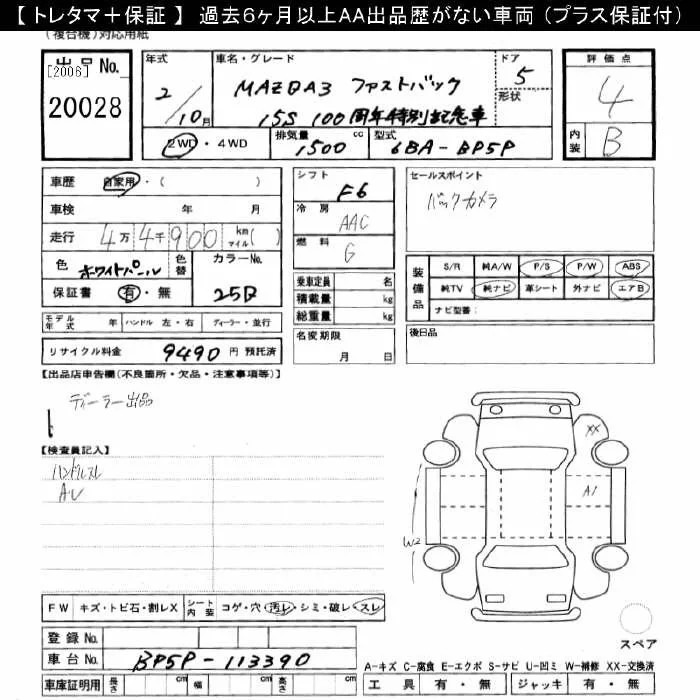 【 トレタマ＋保証 】 過去6ヶ月以上AA出品歴がない車両 (プラス保証付)
(複合機)対応用紙
出品 No.
[2006]
20028
年式
2/10月
車名・グレード
MAZDA3 ファストバック
15S 100周年特別記念車
ドア
5
形状
2WD・4WD
排気量
1500 cc
型式
6BA-BP5P
評価点
4
内装
B
車歴 自家用・( )
車検 年 月
走行 4万4千900 km マイル( )
色 ホワイトパール 色替
カラーNo.
25D
保証書 有・無
モデル年式 年 ハンドル 左・右 ディーラー・並行
リサイクル料金 9490 円 預託済
シフト
F6
冷房
AAC
燃料
G
乗車定員 名
積載量 kg
総重量 kg
名変期限
月 日
セールスポイント
バックカメラ
装備品
S/R 純A/W P/S P/W ABS
純TV 純ナビ 革シート 外ナビ エアB
ナビ型番:
後日品
【出品店申告欄(不良箇所・欠品・注意事項等)】
ディーラー出品
【検査員記入】
ハンドルスレ
AU
XX
A1
W2
FW キズ・トビ石・割レX シート内装 コゲ・穴・汚レ・シミ・破レ・スレ
登録 No.
車台 No. BP5P-113390
車庫証明用 長さ cm 幅 cm 高さ cm
スペア
A-キズ C-腐食 E-エクボ S-サビ U-凹ミ W-補修 XX-交換済
工具 有・無 ジャッキ 有・無